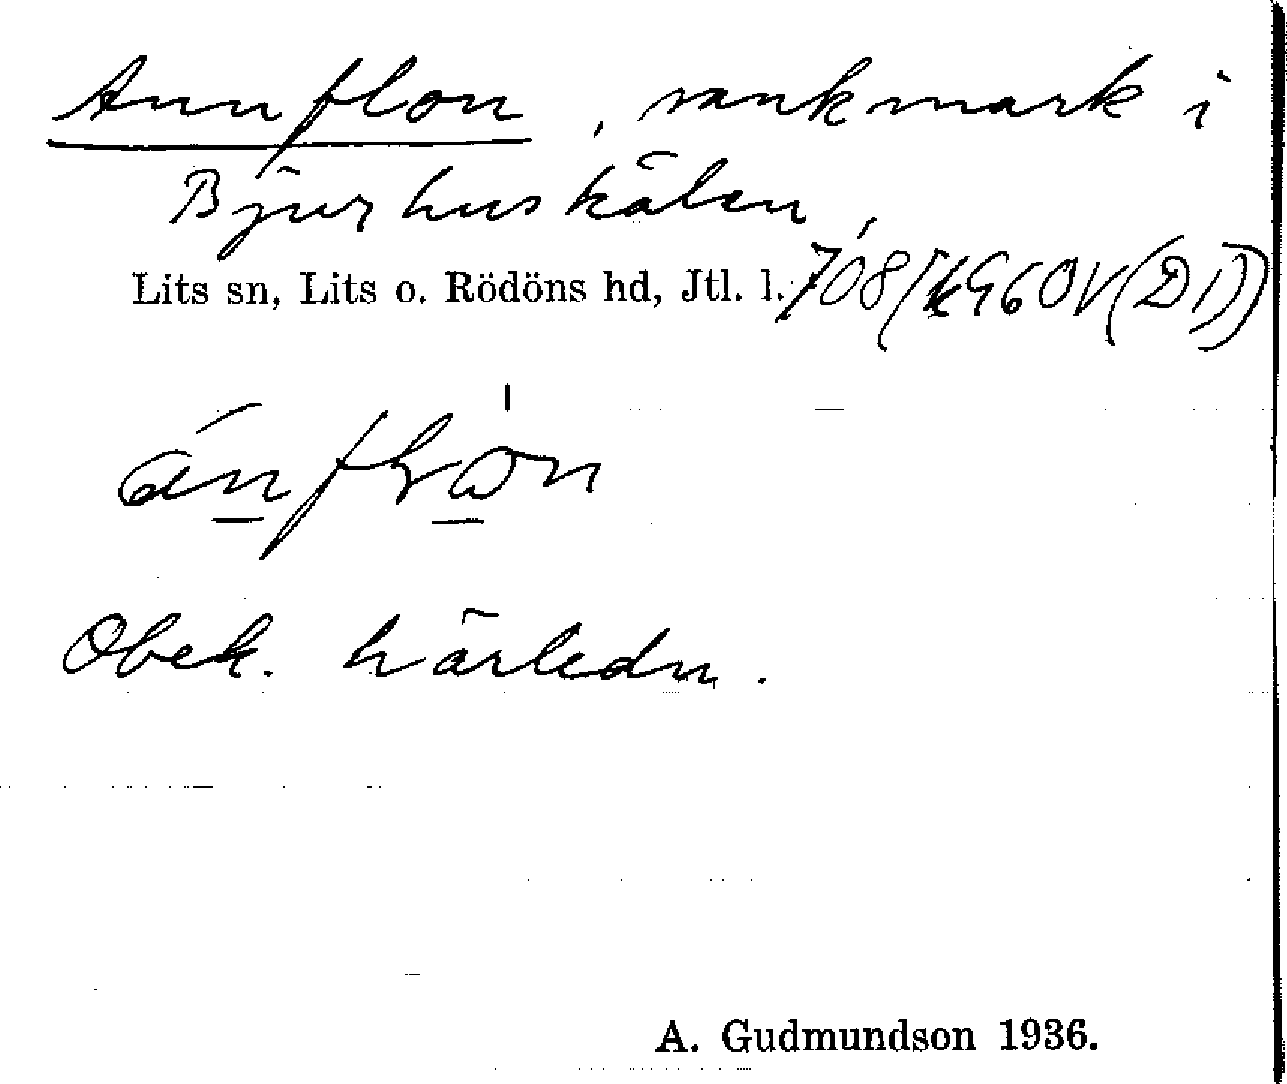 Annflon, sankmark i
Bjurhuskälen,
Lits sn, Lits o. Rödöns hd, Jtl. l.
Obek. härledn.
A. Gudmundson 1936.